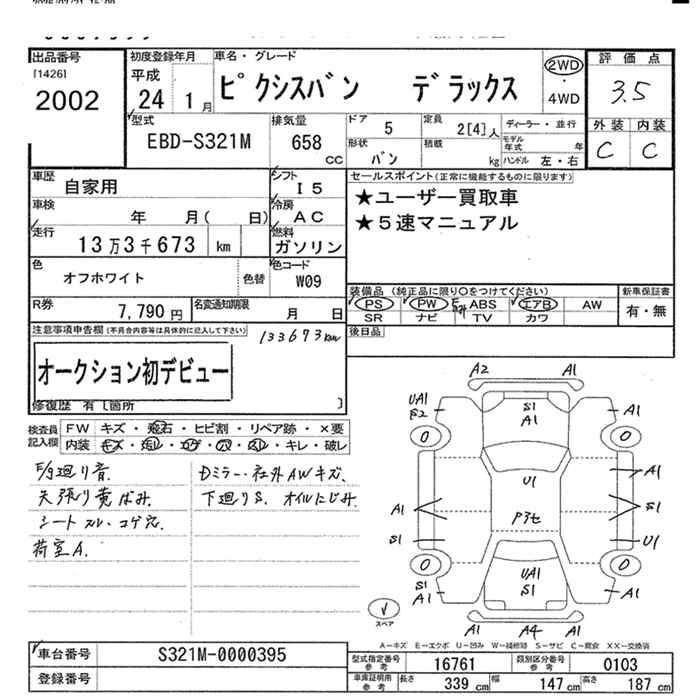 出品番号
[1426]
2002
初度登録年月
平成
24 1月
車名・グレード
ピクシスバン デラックス
2WD
・
4WD
評価点
3.5
外装 内装
C C
型式
EBD-S321M
排気量
658
CC
ドア
5
定員
2[4]人
ディーラー・並行
形状
バン
積載
kg
モデル年式
年
ハンドル 左・右
車歴
自家用
シフト
I5
車検
年 月( 日)
冷房
AC
走行
13万3千673 km
燃料
ガソリン
色
オフホワイト
色替
色コード
W09
R券
7,790円
名変通知期限
月 日
セールスポイント(正常に機能するものに限ります)
★ユーザー買取車
★5速マニュアル
装備品(純正品に限り○をつけてください)
新車保証書
PS PW ABS エアB AW
SR ナビ TV カワ
有・無
後日品
注意事項申告欄(不具合内容等は具体的に記入して下さい)
133673km
オークション初デビュー
修復歴 有 [箇所 ]
検査員記入欄
FW キズ・飛石・ヒビ割・リペア跡・×要
内装 キズ・汚レ・コゲ・穴・スレ・キレ・破レ
天張り黄ばみ.
シートスレ・コゲ穴.
荷室A.
Dミラー・社外AWキズ.
下廻りS. オイルにじみ.
A2 A1
UA1
S2
S1
A1
A1
0 0
U1
A1
A1
S1
S1
U1
0 0
UA1
S1
S1
A1
A1
A1 A4 A1
スペア
A-キズ E-エクボ U-凹み W-補修跡 S-サビ C-腐食 XX-交換済
車台番号
S321M-0000395
登録番号
型式指定番号
参考
16761
類別区分番号
参考
0103
車庫証明用
参考
長さ
339 cm
幅
147 cm
高さ
187 cm